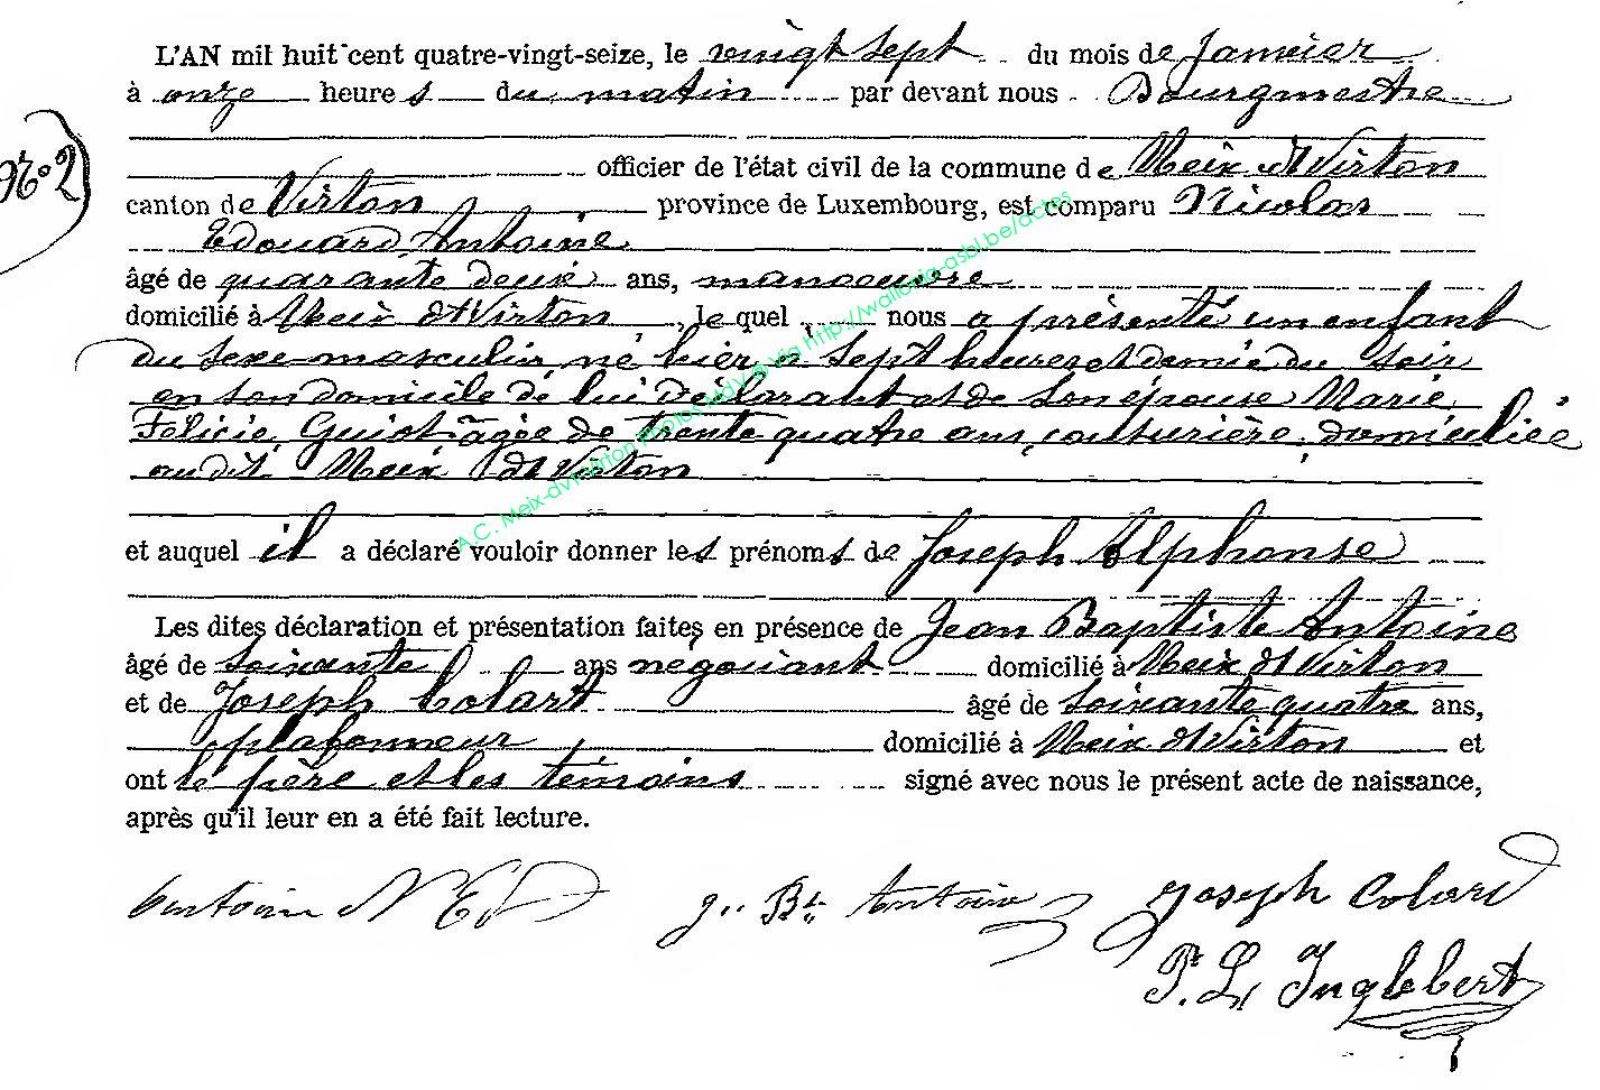 L'AN mil huit cent quatre-vingt-seize, le vingt sept du mois de Janvier
à onze heures du matin par devant nous Bourgmestre
N° 2
officier de l'état civil de la commune de Meix dt Virton
canton de Virton province de Luxembourg, est comparu Nicolas
Edouard Antoine
âgé de quarante deux ans, manoeuvre
domicilié à Meix dt Virton, le quel nous a présenté un enfant
du sexe masculin, né hier à sept heures et demie du soir
en son domicile de lui déclarant et de son épouse Marie
Félicie Guiot âgée de trente quatre ans, couturière, domiciliée
audit Meix dt Virton
et auquel il a déclaré vouloir donner les prénoms de Joseph Alphonse
Les dites déclaration et présentation faites en présence de Jean Baptiste Antoine
âgé de soixante ans négociant domicilié à Meix dt Virton
et de Joseph Colart âgé de soixante quatre ans,
plafonneur, domicilié à Meix dt Virton et
ont le père et les témoins signé avec nous le présent acte de naissance,
après qu'il leur en a été fait lecture.
Antoine N Ed J. Bte Antoine Joseph Colard
P. L. Inglebert
A.C. Meix-dvt-Virton Photos MdV © Via http://wallonia-asbl.be/actes